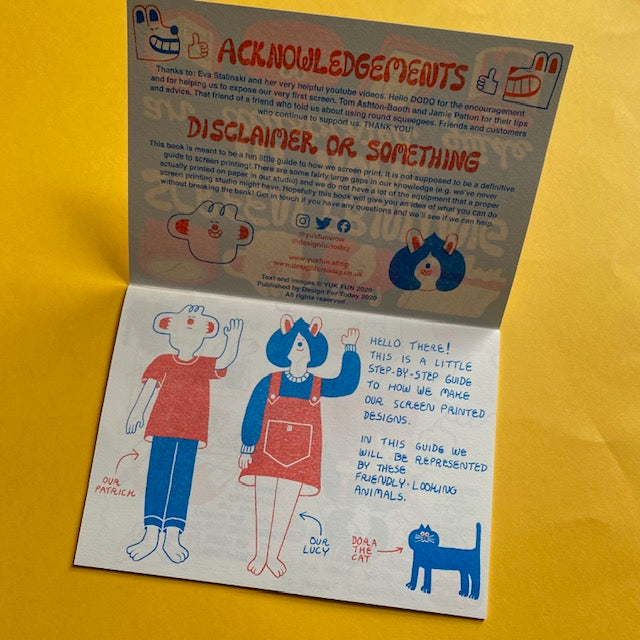 ACKNOWLEDGEMENTS
Thanks to: Eva Stalinski and her very helpful youtube videos. Hello DODO for the encouragement
and for helping us to expose our very first screen. Tom Ashton-Booth and Jamie Patton for their tips
and advice. That friend of a friend who told us about using round squeegees. Friends and customers
who continue to support us. THANK YOU!
DISCLAIMER OR SOMETHING
This book is meant to be a fun little guide to how we screen print, it is not supposed to be a definitive
guide to screen printing! There are some fairly large gaps in our knowledge (e.g. we've never
actually printed on paper in our studio) and we do not have a lot of the equipment that a proper
screen printing studio might have. Hopefully this book will give you an idea of what you can do
without breaking the bank! Get in touch if you have any questions and we'll see if we can help.
@yukfunwow
@designfortoday
www.yukfun.shop
www.designfortoday.co.uk
Text and Images © YUK FUN 2020
Published by Design For Today 2020
All rights reserved
HELLO THERE!
THIS IS A LITTLE
STEP-BY-STEP GUIDE
TO HOW WE MAKE
OUR SCREEN PRINTED
DESIGNS.
IN THIS GUIDE WE
WILL BE REPRESENTED
BY THESE
FRIENDLY-LOOKING
ANIMALS.
OUR
PATRICK
OUR
LUCY
DORA
THE
CAT